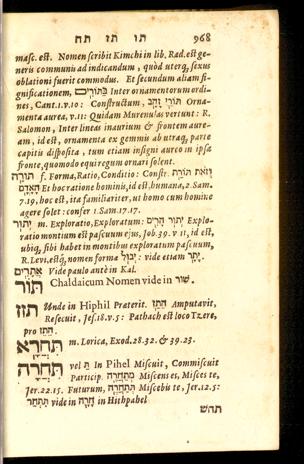 תו תז תח 968
masc. est. Nomen scribit Kimchi in lib. Rad. est ge-
neris communis ad indicandum, quòd uterq; sexus
oblationi fuerit commodus. Et secundum aliam si-
gnificationem, בְּתוֹרִים Inter ornamentorum ordi-
nes, Cant. 1. v. 10: Constructum, תּוֹרֵי זָהָב Orna-
menta aurea, v. 11: Quidam Murenulas vertunt: R.
Salomon, Inter lineas inaurium & frontem aure-
am, id est, ornamenta ex gemmis ab utraq; parte
capitis disposita, tum etiam insigni aurco in ipsa
fronte, quomodo equi regum ornari solent.
תּוֹרָה f. Forma, Ratio, Conditio: Constr. וְזֹאת תּוֹרַת
הָאָדָם Et hoc ratione hominis, id est, humana, 2. Sam.
7. 19, hoc est, ita familiariter, ut homo cum homine
agere solet: confer 1. Sam. 17. 17.
יְתוּר m. Exploratio, Exploratum: יְתוּר הָרִים Explo-
ratio montium est pascuum ejus, Job. 39. v 11, id est,
ubiq; sibi habet in montibus exploratum pascuum,
R. Levi, estq; nomen forma: יְבוּל vide etiam יָתַר
אֲתָרִים Vide paulo antè in Kal.
תּוֹר Chaldaicum Nomen vide in שׁוּר.
תזז Unde in Hiphil Præterit. הֵתַז Amputavit,
Resecuit, Jes. 18. v. 5: Pathach est loco Tzere,
pro הֵתֵז
תַּחְרָא m. Lorica, Exod. 28. 32. & 39. 23.
תַּחְרָה vel תַּ In Pihel Miscuit, Commiscuit
Particip. מְתַחֲרֶה Miscens es, Misces te,
Jer. 22. 15. Futurum, תְּתַחֲרֶה Miscebis te, Jer. 12. 5:
תִּתְחַר vide in חָרָה in Hithpahel
תהש